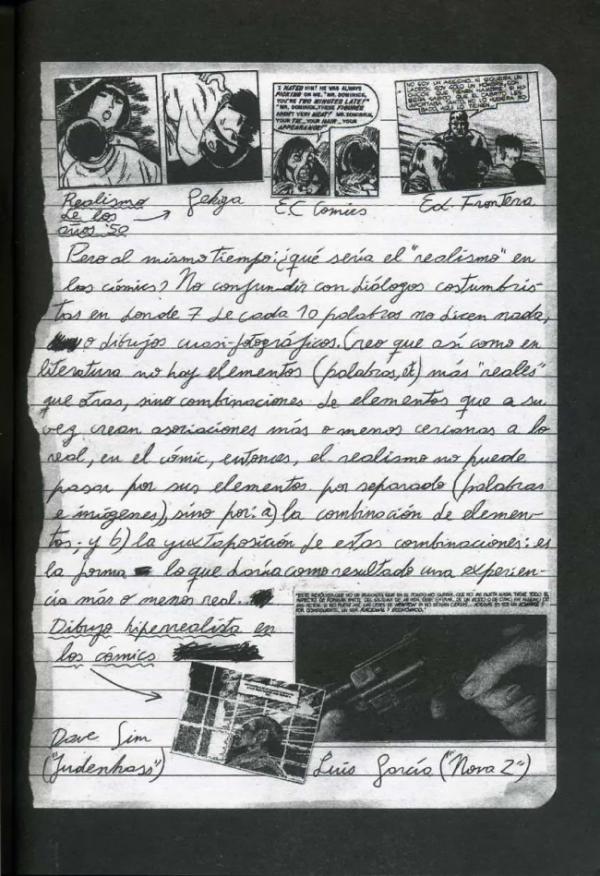 I HATED HIM! HE WAS ALWAYS
PICKING ON ME. "MR. DOMINICK,
YOU'RE TWO MINUTES LATE!"
"MR. DOMINICK, THESE FIGURES
AREN'T VERY NEAT!" "MR. DOMINICK,
YOUR TIE... YOUR HAIR... YOUR
APPEARANCE!"
NO SOY UN ASESINO, NI SIQUIERA UN
LADRÓN. SOY SOLO UN HOMBRE CON
Realismo
de los
años '50
Gekiga
E.C Comics
Ed. Frontera
Pero al mismo tiempo: ¿qué sería el "realismo" en
los cómics? No confundir con diálogos costumbris-
tas en donde 7 de cada 10 palabras no dicen nada,
o dibujos cuasi-fotográficos. Creo que así como en
literatura no hay elementos (palabras, etc) más "reales"
que otras, sino combinaciones de elementos que a su
vez crean asociaciones más o menos cercanas a lo
real, en el cómic, entonces, el realismo no puede
pasar por sus elementos por separado (palabras
e imágenes), sino por: a) la combinación de elemen-
tos; y b) la yuxtaposición de estas combinaciones: es
la forma lo que daría como resultado una experien-
cia más o menos real...
Dibujo hiperrealista en
los cómics
Dave Sim
("Judenhass")
Luis García ("Nova 2")